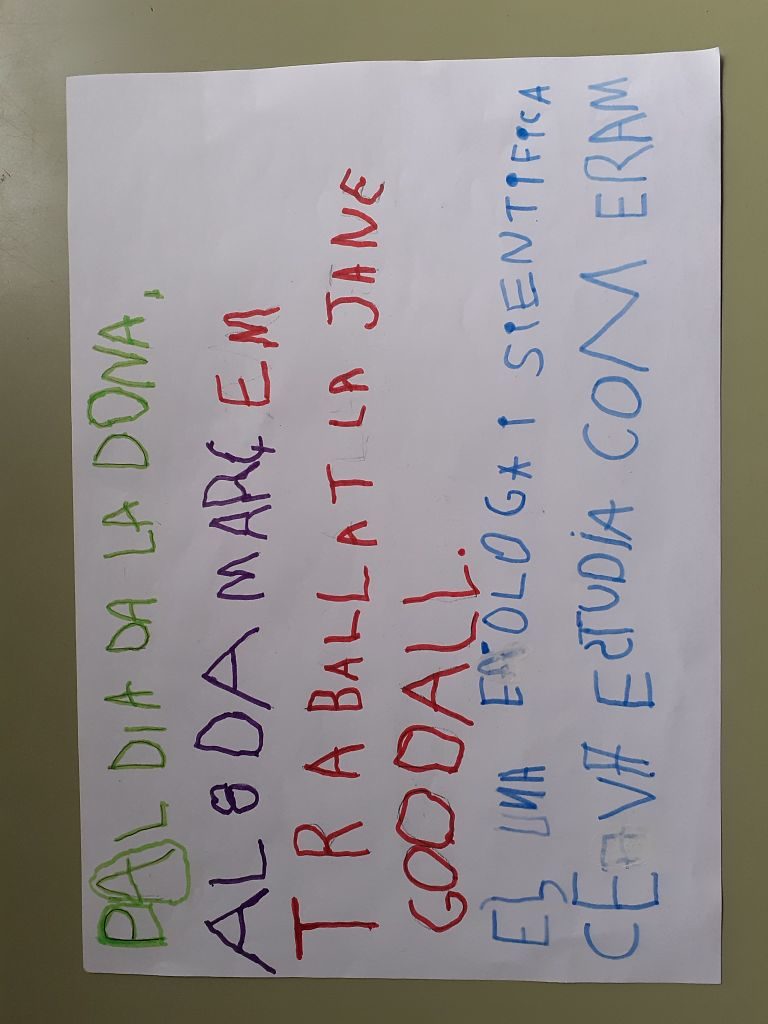 PAL DIA DA LA DONA,
AL 8 DA MARÇ EM
TRABALLAT LA JANE
GOODALL.
EL UNA ETOLOGA I SIENTIFICA
CE VA ESTUDIA COM ERAM